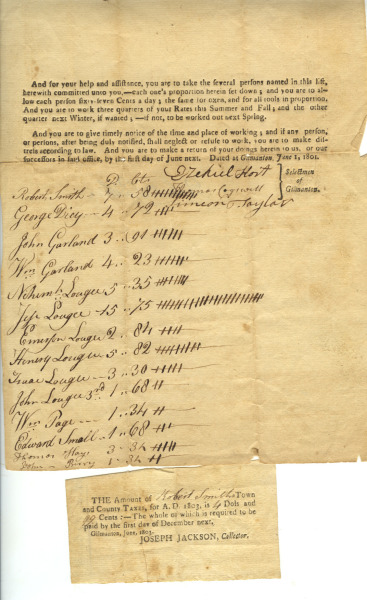 And for your help and assistance, you are to take the several persons named in this list,
herewith committed unto you,—each one's proportion herein set down; and you are to al-
low each person sixty-seven Cents a day; the same for oxen, and for all tools in proportion.
And you are to work three quarters of your Rates this Summer and Fall; and the other
quarter next Winter, if wanted;—if not, to be worked out next Spring.
And you are to give timely notice of the time and place of working; and if any person,
or persons, after being duly notified, shall neglect or refuse to work, you are to make dis-
tress according to law. And you are to make a return of your doings herein to us, or our
successors in said office, by the first day of June next. Dated at Gilmanton, June 1, 1801.
D. Cts
Ezekiel Hoit
Selectmen
of
Gilmanton.
Robert Smith 7 .. 58
Simeon Taylor
George 4 .. 72
John Garland 3 .. 91
Wm Garland 4 .. 23
Nehemh Lougee 5 .. 35
Jesse Lougee 15 .. 75
Emerson Lougee 2 .. 84
Henery Lougee 5 .. 82
Isaac Lougee 3 .. 30
John Lougee 3rd 1 .. 68
Wm Page 1 .. 34
Edward Small 1 .. 68
Thomas 3 .. 34
John 1 .. 34
THE Amount of Robert Smiths Town
and County Taxes, for A. D. 1803, is 4 Dols and
Cents:—The whole of which is required to be
paid by the first day of December next.
Gilmanton, June, 1803.
JOSEPH JACKSON, Collector.